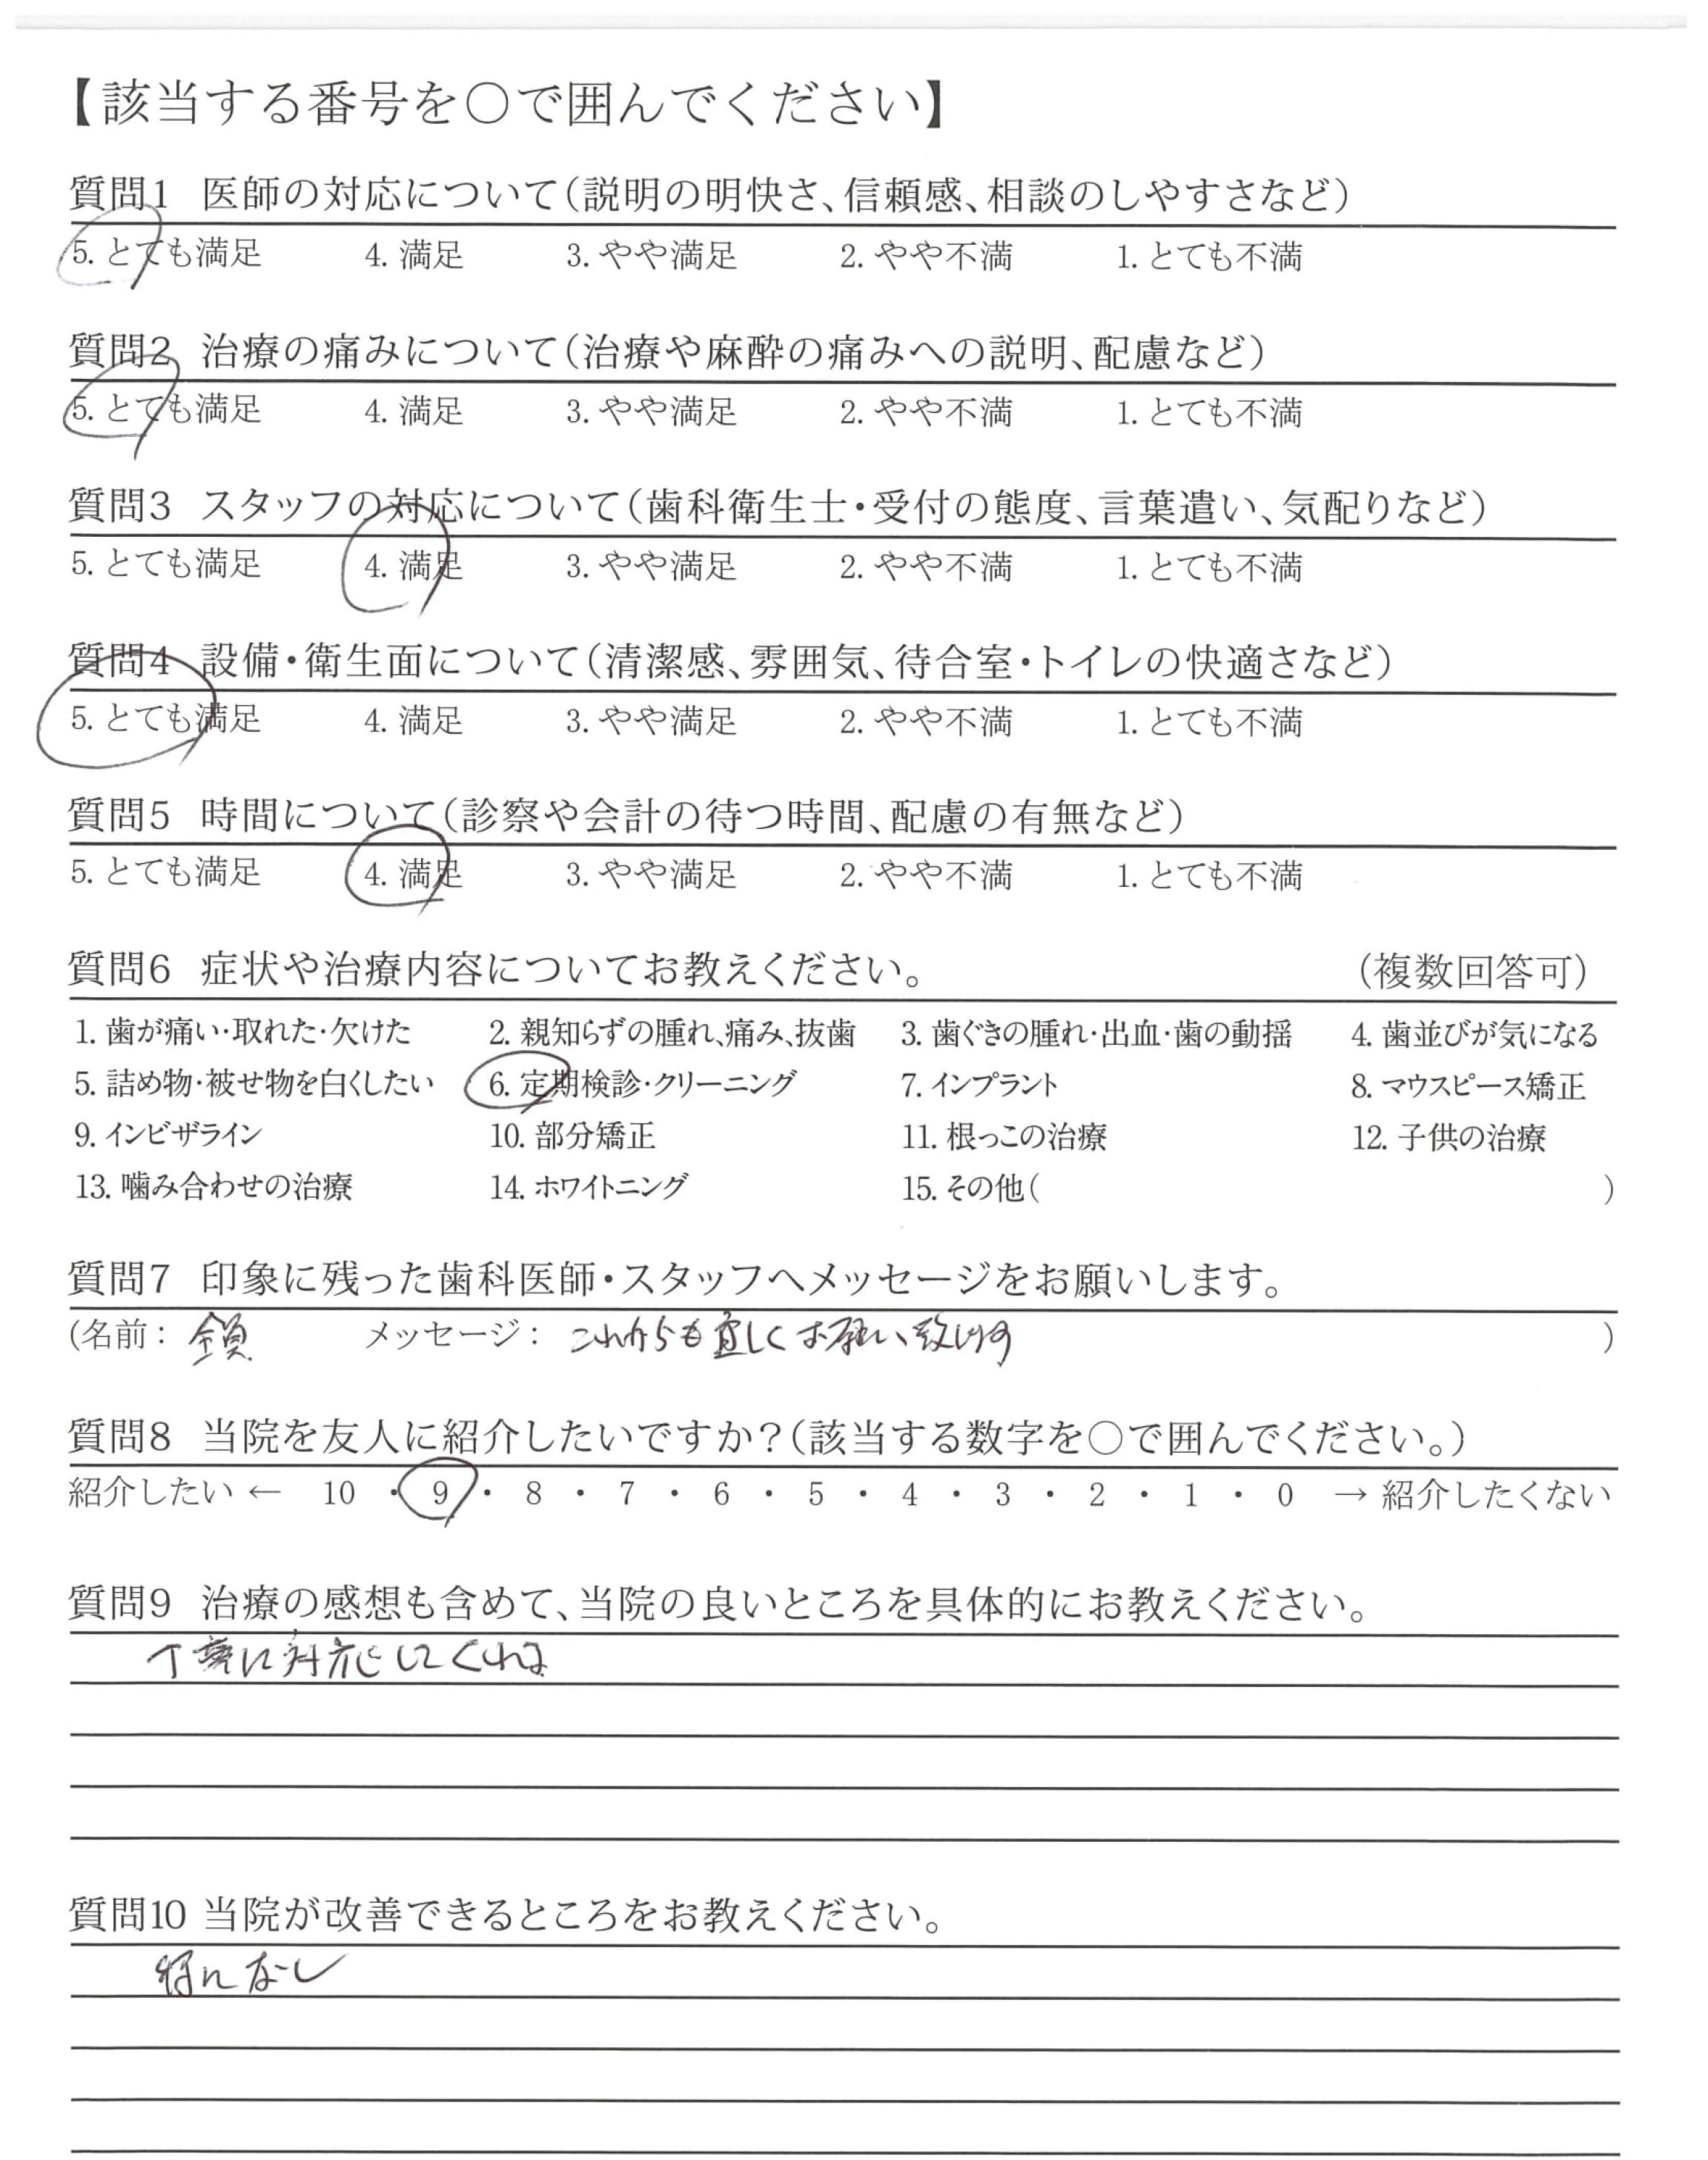 【該当する番号を○で囲んでください】
質問1 医師の対応について(説明の明快さ、信頼感、相談のしやすさなど)
5. とても満足 4. 満足 3. やや満足 2. やや不満 1. とても不満
質問2 治療の痛みについて(治療や麻酔の痛みへの説明、配慮など)
5. とても満足 4. 満足 3. やや満足 2. やや不満 1. とても不満
質問3 スタッフの対応について(歯科衛生士・受付の態度、言葉遣い、気配りなど)
5. とても満足 4. 満足 3. やや満足 2. やや不満 1. とても不満
質問4 設備・衛生面について(清潔感、雰囲気、待合室・トイレの快適さなど)
5. とても満足 4. 満足 3. やや満足 2. やや不満 1. とても不満
質問5 時間について(診察や会計の待つ時間、配慮の有無など)
5. とても満足 4. 満足 3. やや満足 2. やや不満 1. とても不満
質問6 症状や治療内容についてお教えください。 (複数回答可)
1. 歯が痛い・取れた・欠けた 2. 親知らずの腫れ、痛み、抜歯 3. 歯ぐきの腫れ・出血・歯の動揺 4. 歯並びが気になる
5. 詰め物・被せ物を白くしたい 6. 定期検診・クリーニング 7. インプラント 8. マウスピース矯正
9. インビザライン 10. 部分矯正 11. 根っこの治療 12. 子供の治療
13. 噛み合わせの治療 14. ホワイトニング 15. その他( )
質問7 印象に残った歯科医師・スタッフへメッセージをお願いします。
(名前: 全員 メッセージ: これからも宜しくお願い致します )
質問8 当院を友人に紹介したいですか?(該当する数字を○で囲んでください。)
紹介したい ← 10 ・ 9 ・ 8 ・ 7 ・ 6 ・ 5 ・ 4 ・ 3 ・ 2 ・ 1 ・ 0 → 紹介したくない
質問9 治療の感想も含めて、当院の良いところを具体的にお教えください。
丁寧に対応してくれる
質問10 当院が改善できるところをお教えください。
特になし